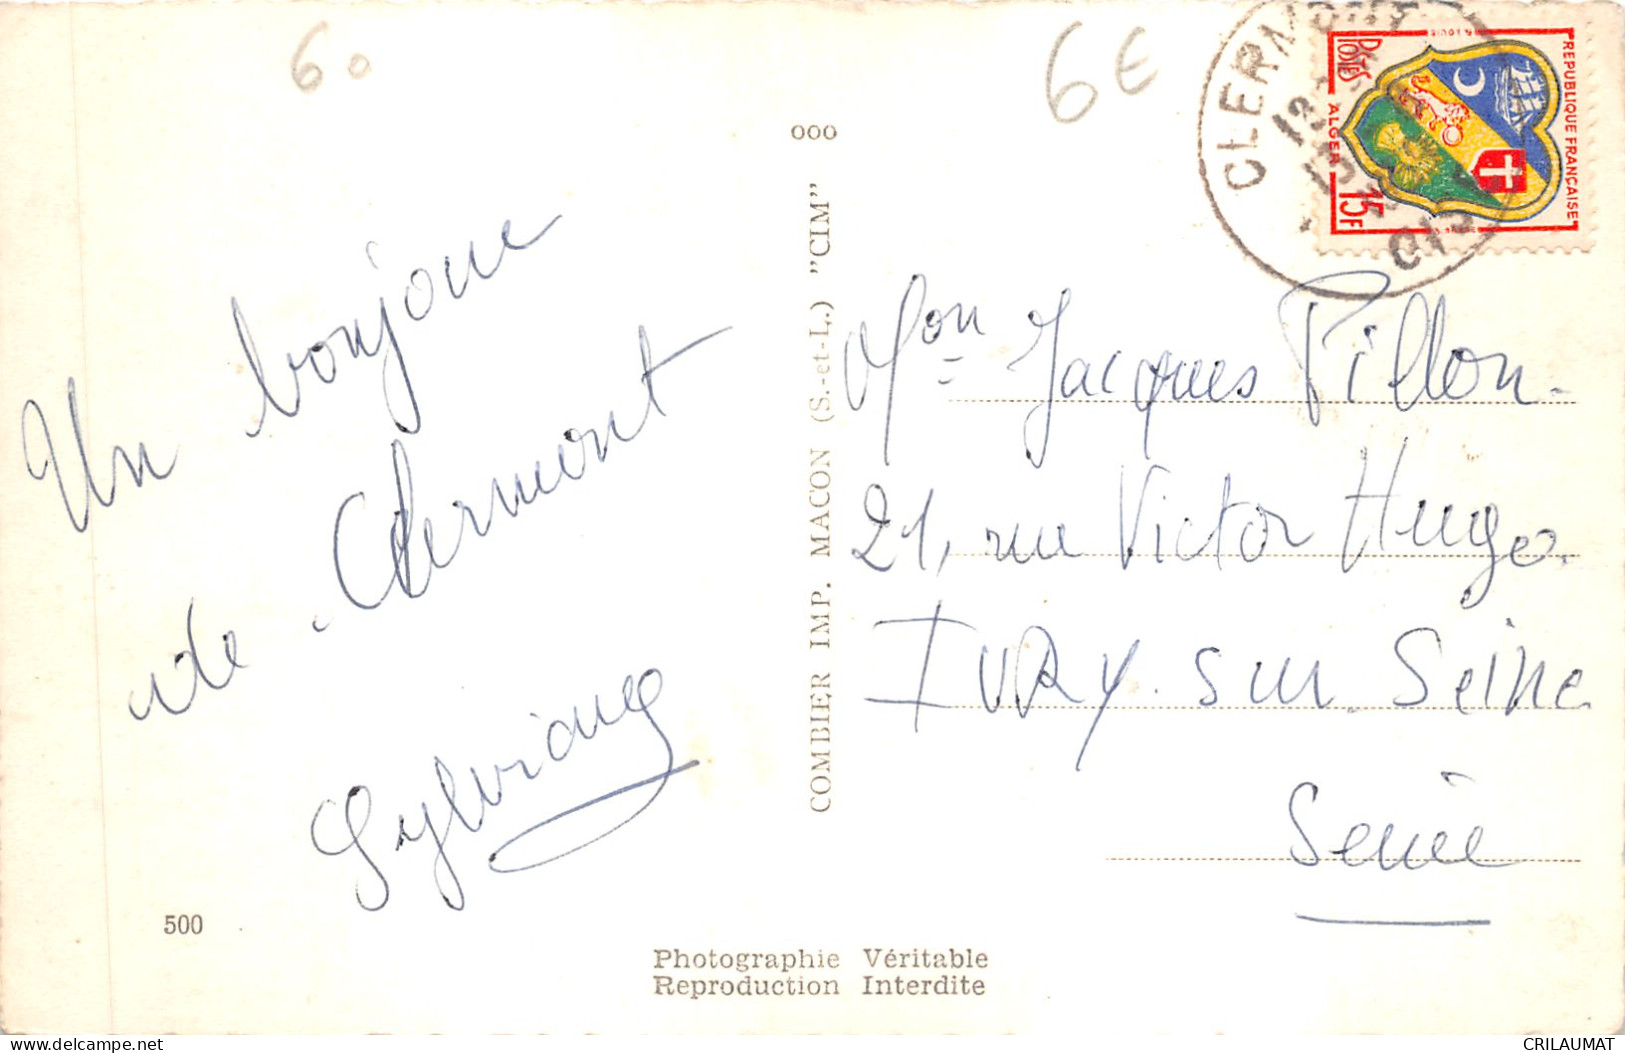 60
6€
000
CLERMONT
OISE
REPUBLIQUE FRANÇAISE
POSTES
ALGER
15F
Un bonjour
de Clermont
Sylviane
COMBIER IMP. MACON (S.-et-L.) "CIM"
Mon Jacques Pillon.
21, rue Victor Hugo.
IVRY. sur. Seine
Seine
500
Photographie Véritable
Reproduction Interdite
delcampe.net
CRILAUMAT